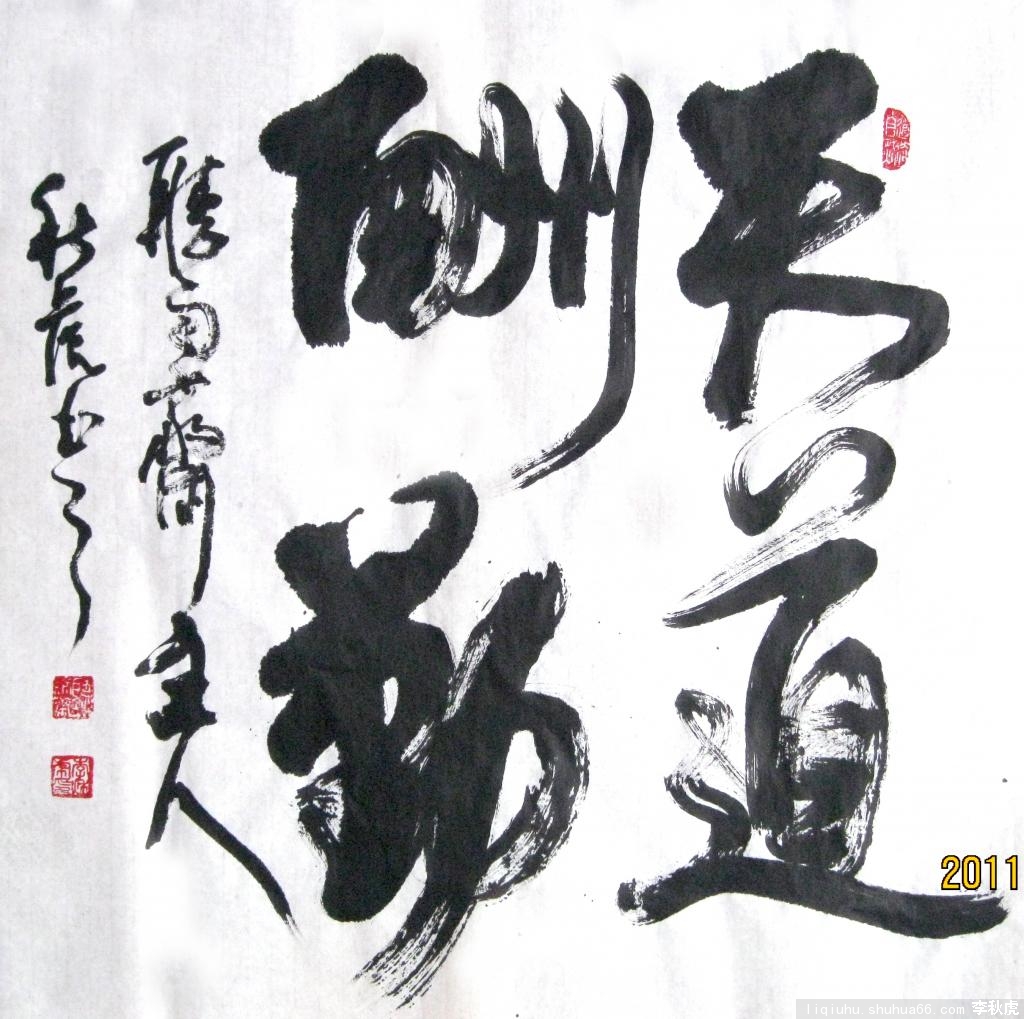 天道
酬勤
聽雨齋主人
秋虎书之
2011
liqiuhu.shuhua66.com 李秋虎